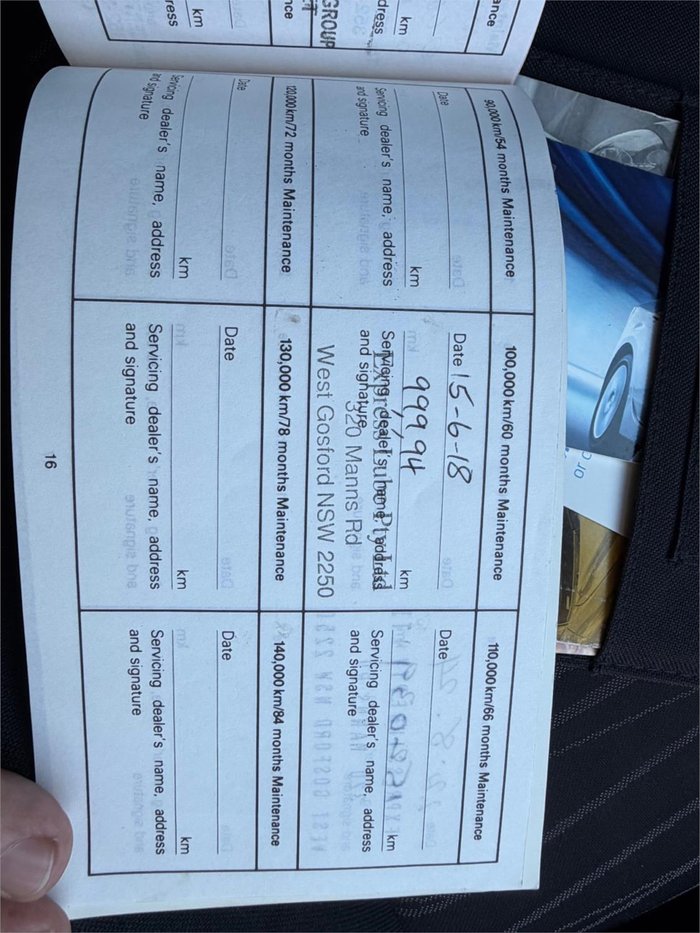 GROUP
90,000 km/54 months Maintenance
Date
km
Servicing dealer's name, address
and signature
100,000 km/60 months Maintenance
Date 15-6-18
99,994 km
Servicing dealer's name, address
and signature
Express Lube Pty Ltd
320 Manns Rd
West Gosford NSW 2250
110,000 km/66 months Maintenance
Date
km
Servicing dealer's name, address
and signature
120,000 km/72 months Maintenance
Date
km
Servicing dealer's name, address
and signature
130,000 km/78 months Maintenance
Date
km
Servicing dealer's name, address
and signature
140,000 km/84 months Maintenance
Date
km
Servicing dealer's name, address
and signature
16